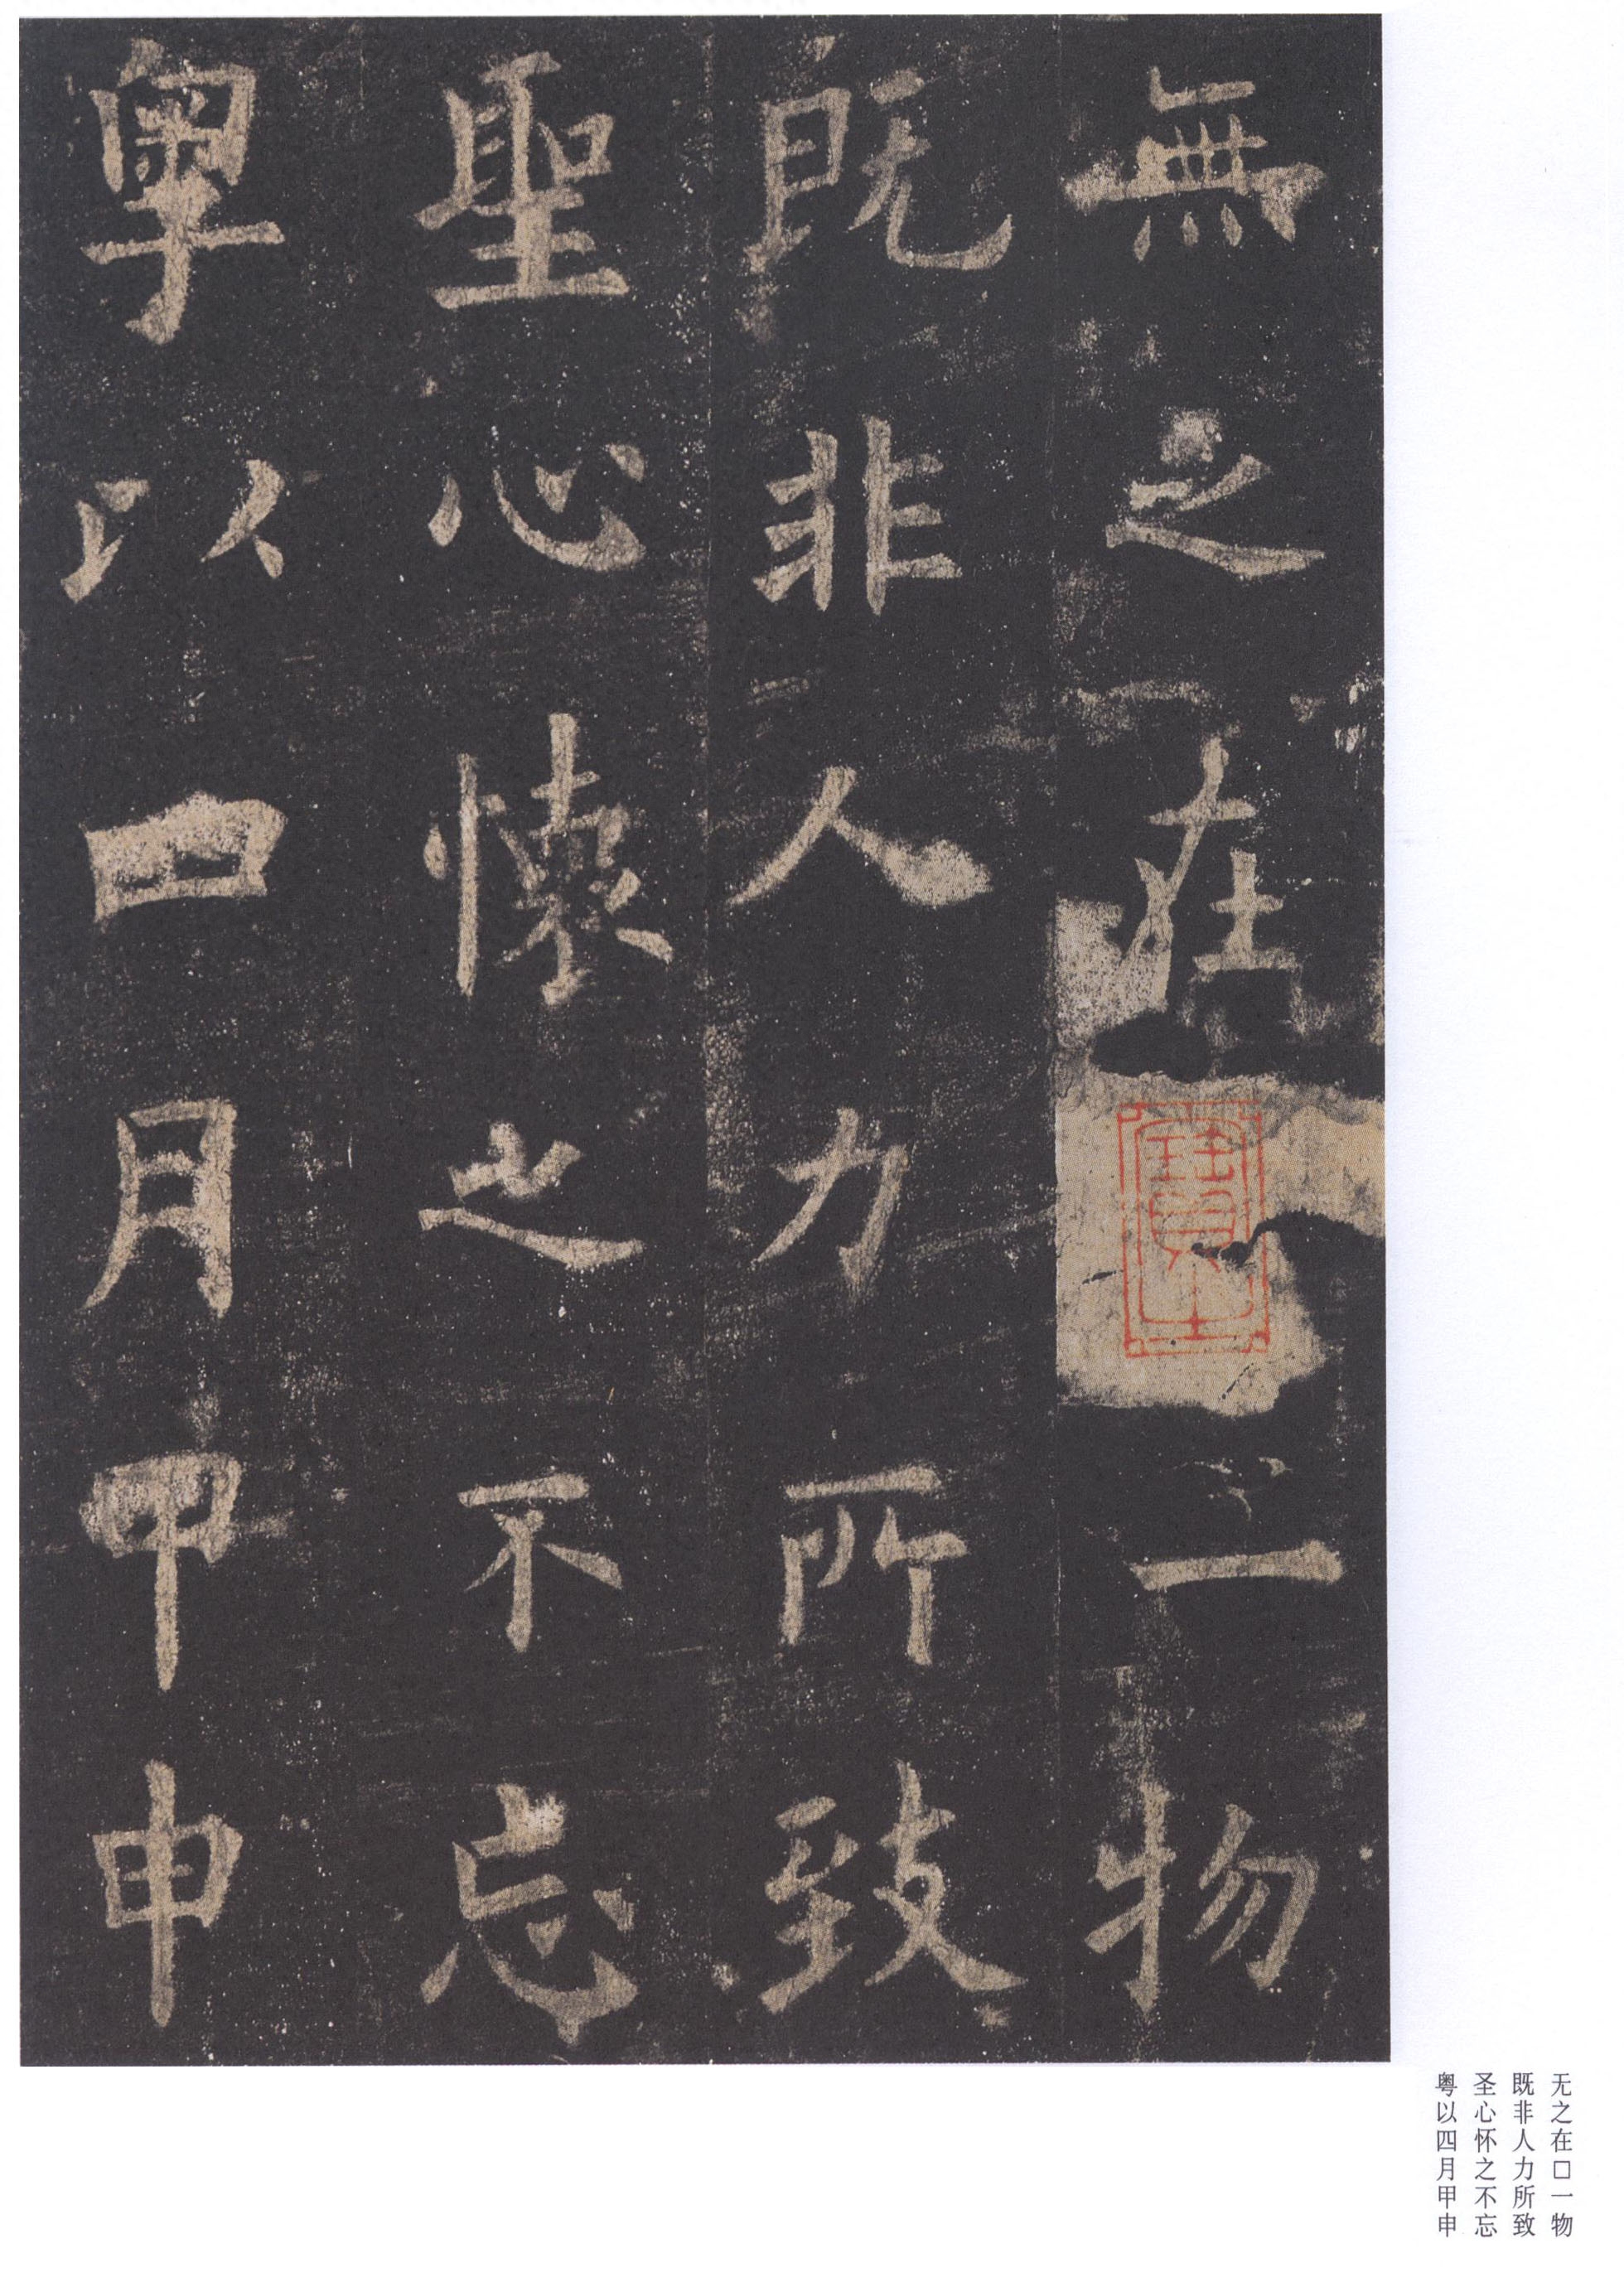 無之在一物
既非人力所致
聖心懷之不忘
粤以四月甲申
无之在□一物
既非人力所致
圣心怀之不忘
粤以四月甲申